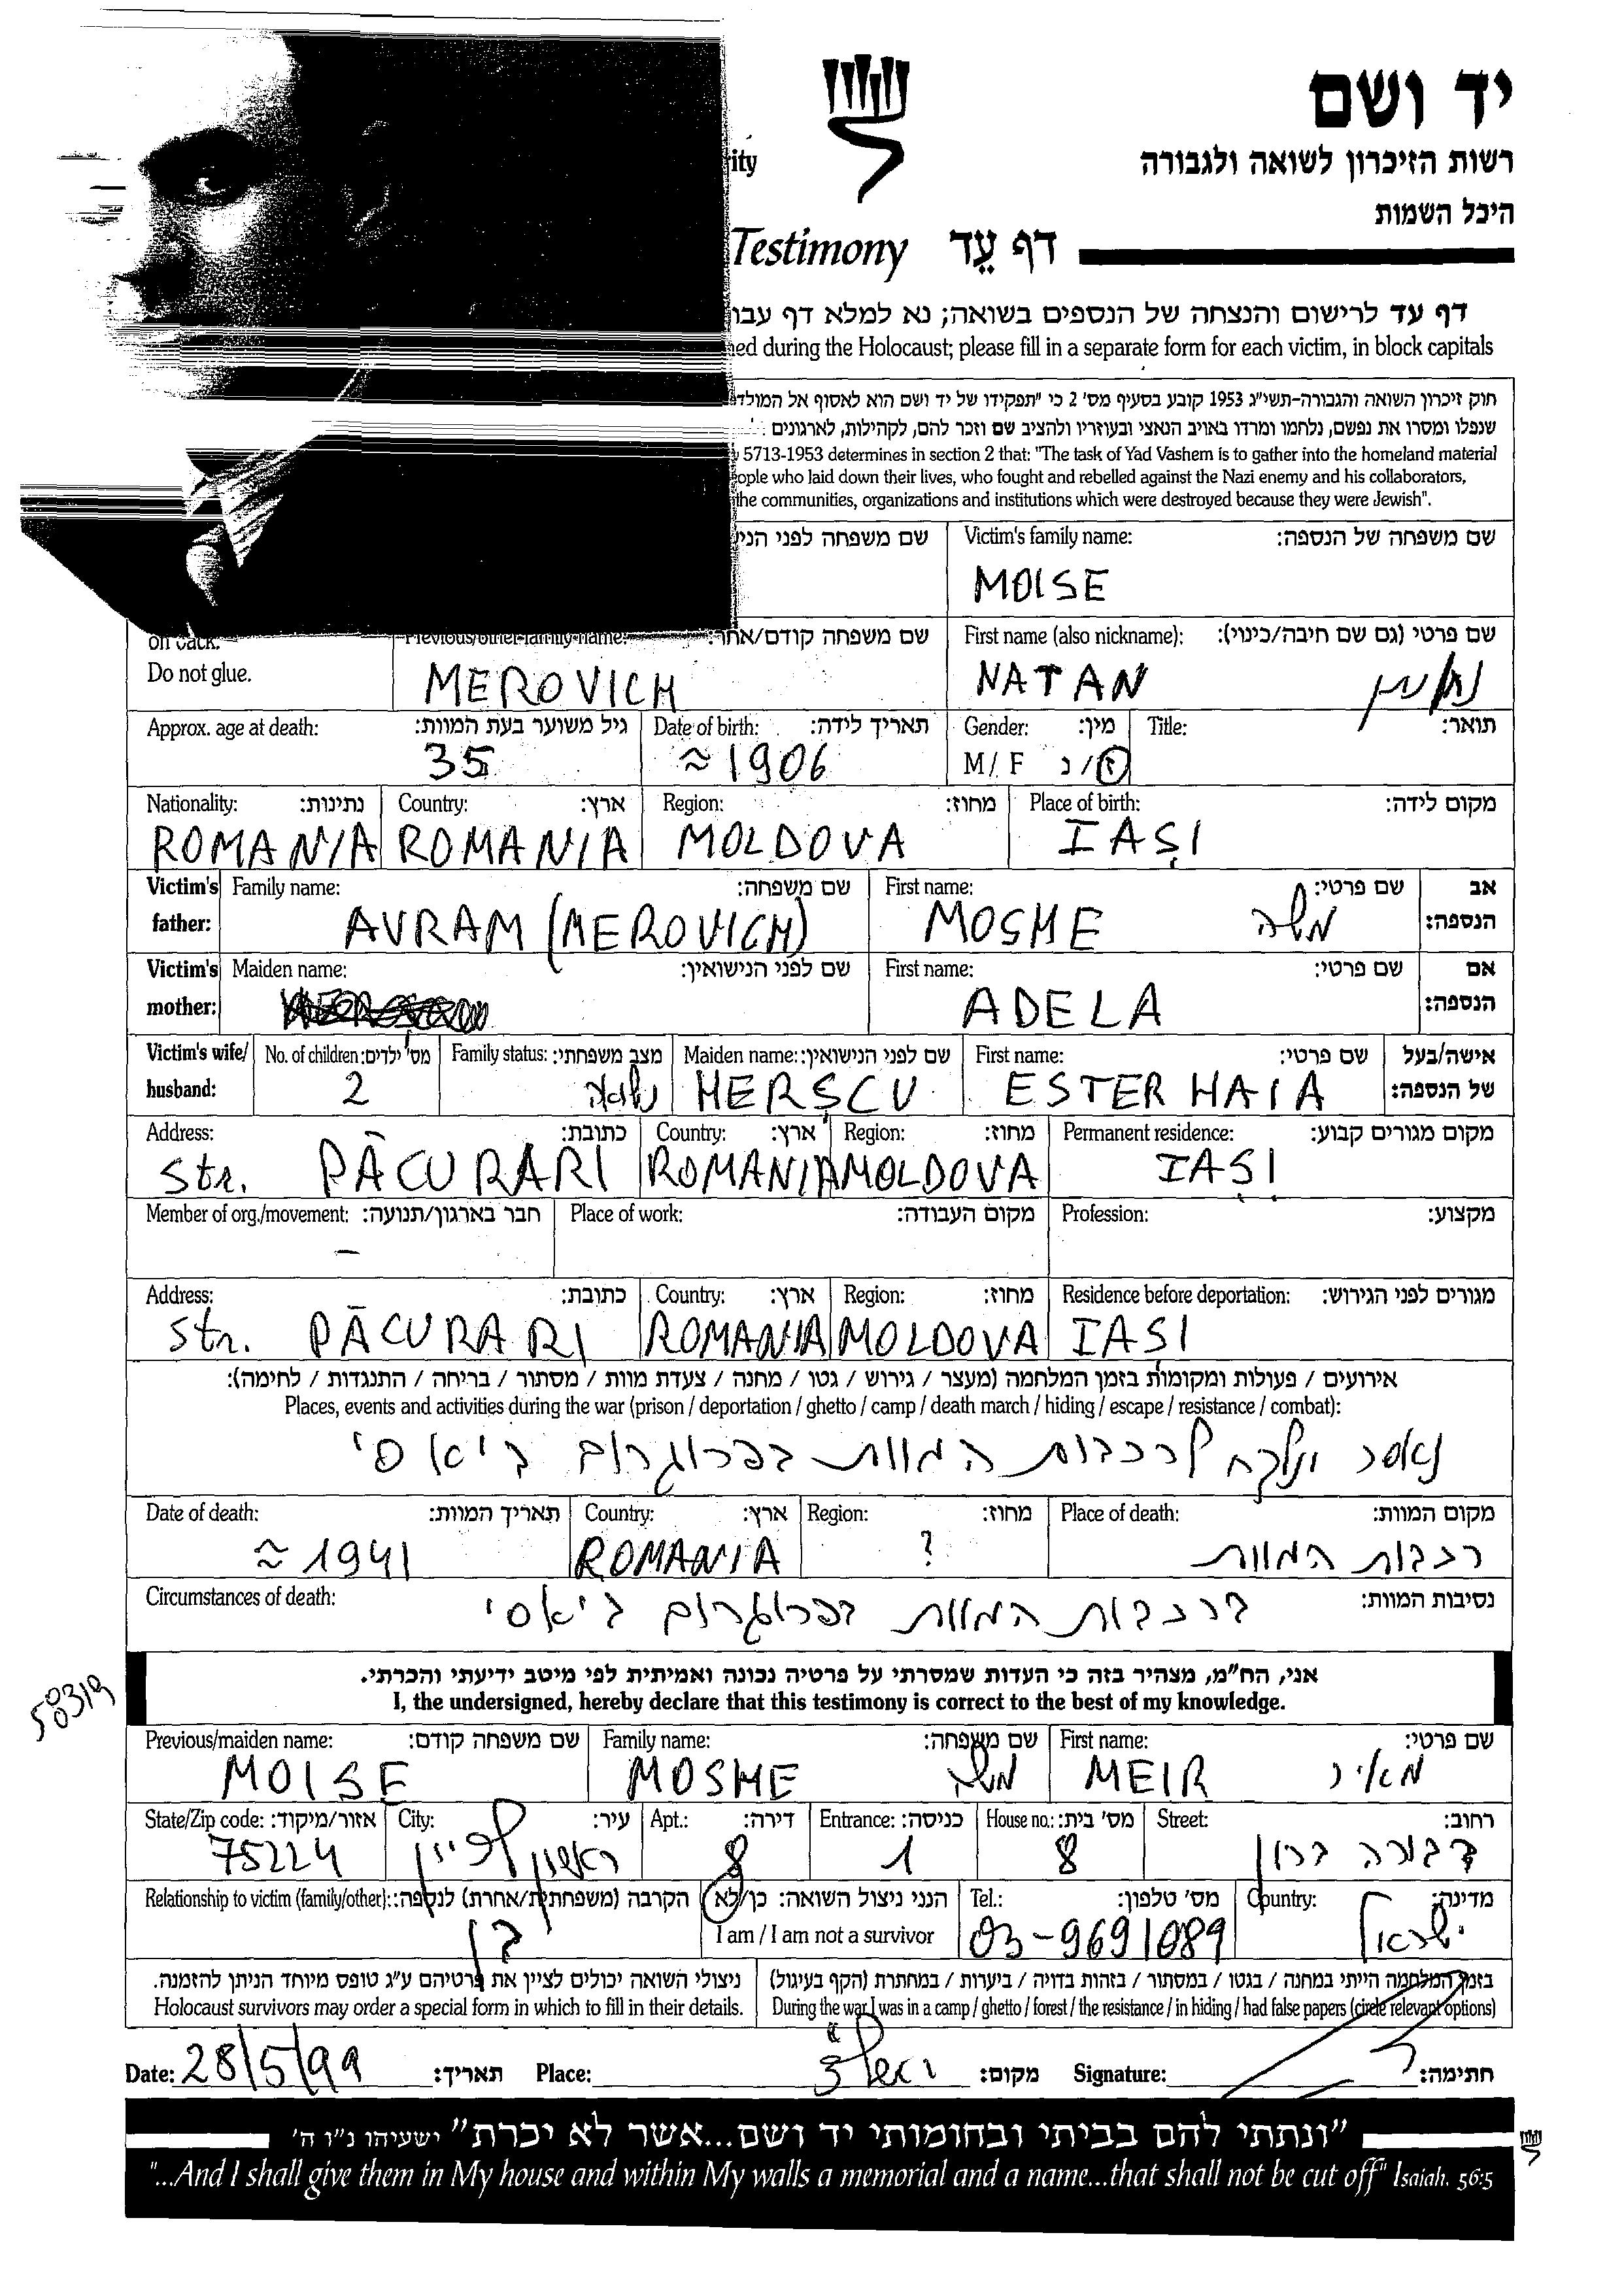 יד ושם
רשות הזיכרון לשואה ולגבורה
היכל השמות
דף עֵד Testimony
דף עד לרישום והנצחה של הנספים בשואה; נא למלא דף
during the Holocaust; please fill in a separate form for each victim, in block capitals
חוק זיכרון השואה והגבורה-תשי״ג 1953 קובע בסעיף מס' 2 כי "תפקידו של יד ושם הוא לאסוף אל
שנפלו ומסרו את נפשם, נלחמו ומרדו באויב הנאצי ובעוזריו ולהציב שם וזכר להם, לקהילות, לארגונים
5713-1953 determines in section 2 that: "The task of Yad Vashem is to gather into the homeland material
who laid down their lives, who fought and rebelled against the Nazi enemy and his collaborators,
the communities, organizations and institutions which were destroyed because they were Jewish".
שם משפחה לפני
Victim's family name: שם משפחה של הנספה:
MOISE
on back.
Do not glue.
Previous/other family name: שם משפחה קודם/אחר:
MEROVICH
First name (also nickname): שם פרטי (גם שם חיבה/כינוי):
NATAN נתן
Approx. age at death: גיל משוער בעת המוות:
35
Date of birth: תאריך לידה:
≈1906
Gender: מין:
M/ F ז/נ
Title: תואר:
Nationality: נתינות:
ROMANIA
Country: ארץ:
ROMANIA
Region: מחוז:
MOLDOVA
Place of birth: מקום לידה:
IAŞI
Victim's father: אב הנספה:
Family name: שם משפחה:
AVRAM (MEROVICH)
First name: שם פרטי:
MOSHE משה
Victim's mother: אם הנספה:
Maiden name: שם לפני הנישואין:
First name: שם פרטי:
ADELA
Victim's wife/ husband: אישה/בעל של הנספה:
No. of children: מס' ילדים:
2
Family status: מצב משפחתי:
נשוי
Maiden name: שם לפני הנישואין:
HERŞCU
First name: שם פרטי:
ESTER HAIA
Address: כתובת:
Str. PĂCURARI
Country: ארץ:
ROMANIA
Region: מחוז:
MOLDOVA
Permanent residence: מקום מגורים קבוע:
IAŞI
Member of org./movement: חבר בארגון/תנועה:
–
Place of work: מקום העבודה:
Profession: מקצוע:
Address: כתובת:
Str. PĂCURARI
Country: ארץ:
ROMANIA
Region: מחוז:
MOLDOVA
Residence before deportation: מגורים לפני הגירוש:
IASI
אירועים / פעולות ומקומות בזמן המלחמה (מעצר / גירוש / גטו / מחנה / צעדת מוות / מסתור / בריחה / התנגדות / לחימה):
Places, events and activities during the war (prison / deportation / ghetto / camp / death march / hiding / escape / resistance / combat):
נאסר ונלקח לרכבות המוות בפרוגרום ביאסי
Date of death: תאריך המוות:
≈ 1941
Country: ארץ:
ROMANIA
Region: מחוז:
?
Place of death: מקום המוות:
רכבות המוות
Circumstances of death: נסיבות המוות:
ברכבות המוות בפרוגרום ביאסי
אני, הח״מ, מצהיר בזה כי העדות שמסרתי על פרטיה נכונה ואמיתית לפי מיטב ידיעתי והכרתי.
I, the undersigned, hereby declare that this testimony is correct to the best of my knowledge.
58319
Previous/maiden name: שם משפחה קודם:
MOISE
Family name: שם משפחה:
MOSHE משה
First name: שם פרטי:
MEIR מאיר
State/Zip code: אזור/מיקוד:
75224
City: עיר:
ראשון לציון
Apt.: דירה:
8
Entrance: כניסה:
1
House no.: מס' בית:
8
Street: רחוב:
דבורה ברון
Relationship to victim (family/other): הקרבה (משפחתית/אחרת) לנספה:
בן
הנני ניצול השואה: כן/לא
I am / I am not a survivor
Tel.: מס' טלפון:
03-9691089
Country: מדינה:
ישראל
ניצולי השואה יכולים לציין את פרטיהם ע״ג טופס מיוחד הניתן להזמנה.
Holocaust survivors may order a special form in which to fill in their details.
בזמן המלחמה הייתי במחנה / בגטו / במסתור / בזהות בדויה / ביערות / במחתרת (הקף בעיגול)
During the war I was in a camp / ghetto / forest / the resistance / in hiding / had false papers (circle relevant options)
Date: 28/5/99 תאריך:
Place: ראשל״צ מקום:
Signature: חתימה:
"ונתתי להם בביתי ובחומותי יד ושם...אשר לא יכרת" ישעיהו נ״ו ה'
"...And I shall give them in My house and within My walls a memorial and a name...that shall not be cut off" Isaiah. 56:5